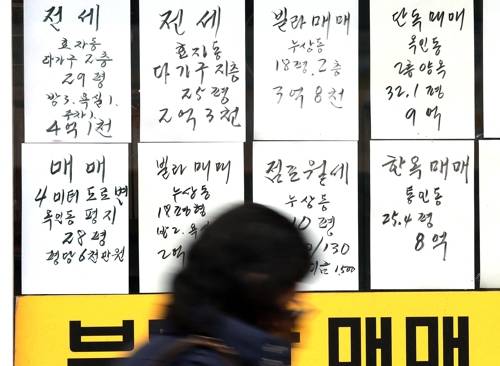 전세
효자동
다가구 2층
29평
방3. 욕실1.
주차1.
4억 1천
전세
효자동
다가구 지층
25평
2억 3천
빌라매매
누상동
18평. 2층
3억 8천
단독매매
옥인동
2층양옥
32.1평
9억
매매
4미터 도로변
옥인동 평지
28평
평당 6천만원
빌라매매
누상동
방2.
2억
점포월세
누상동
10평
/130
1,500
한옥매매
통인동
25.4평
8억
매매